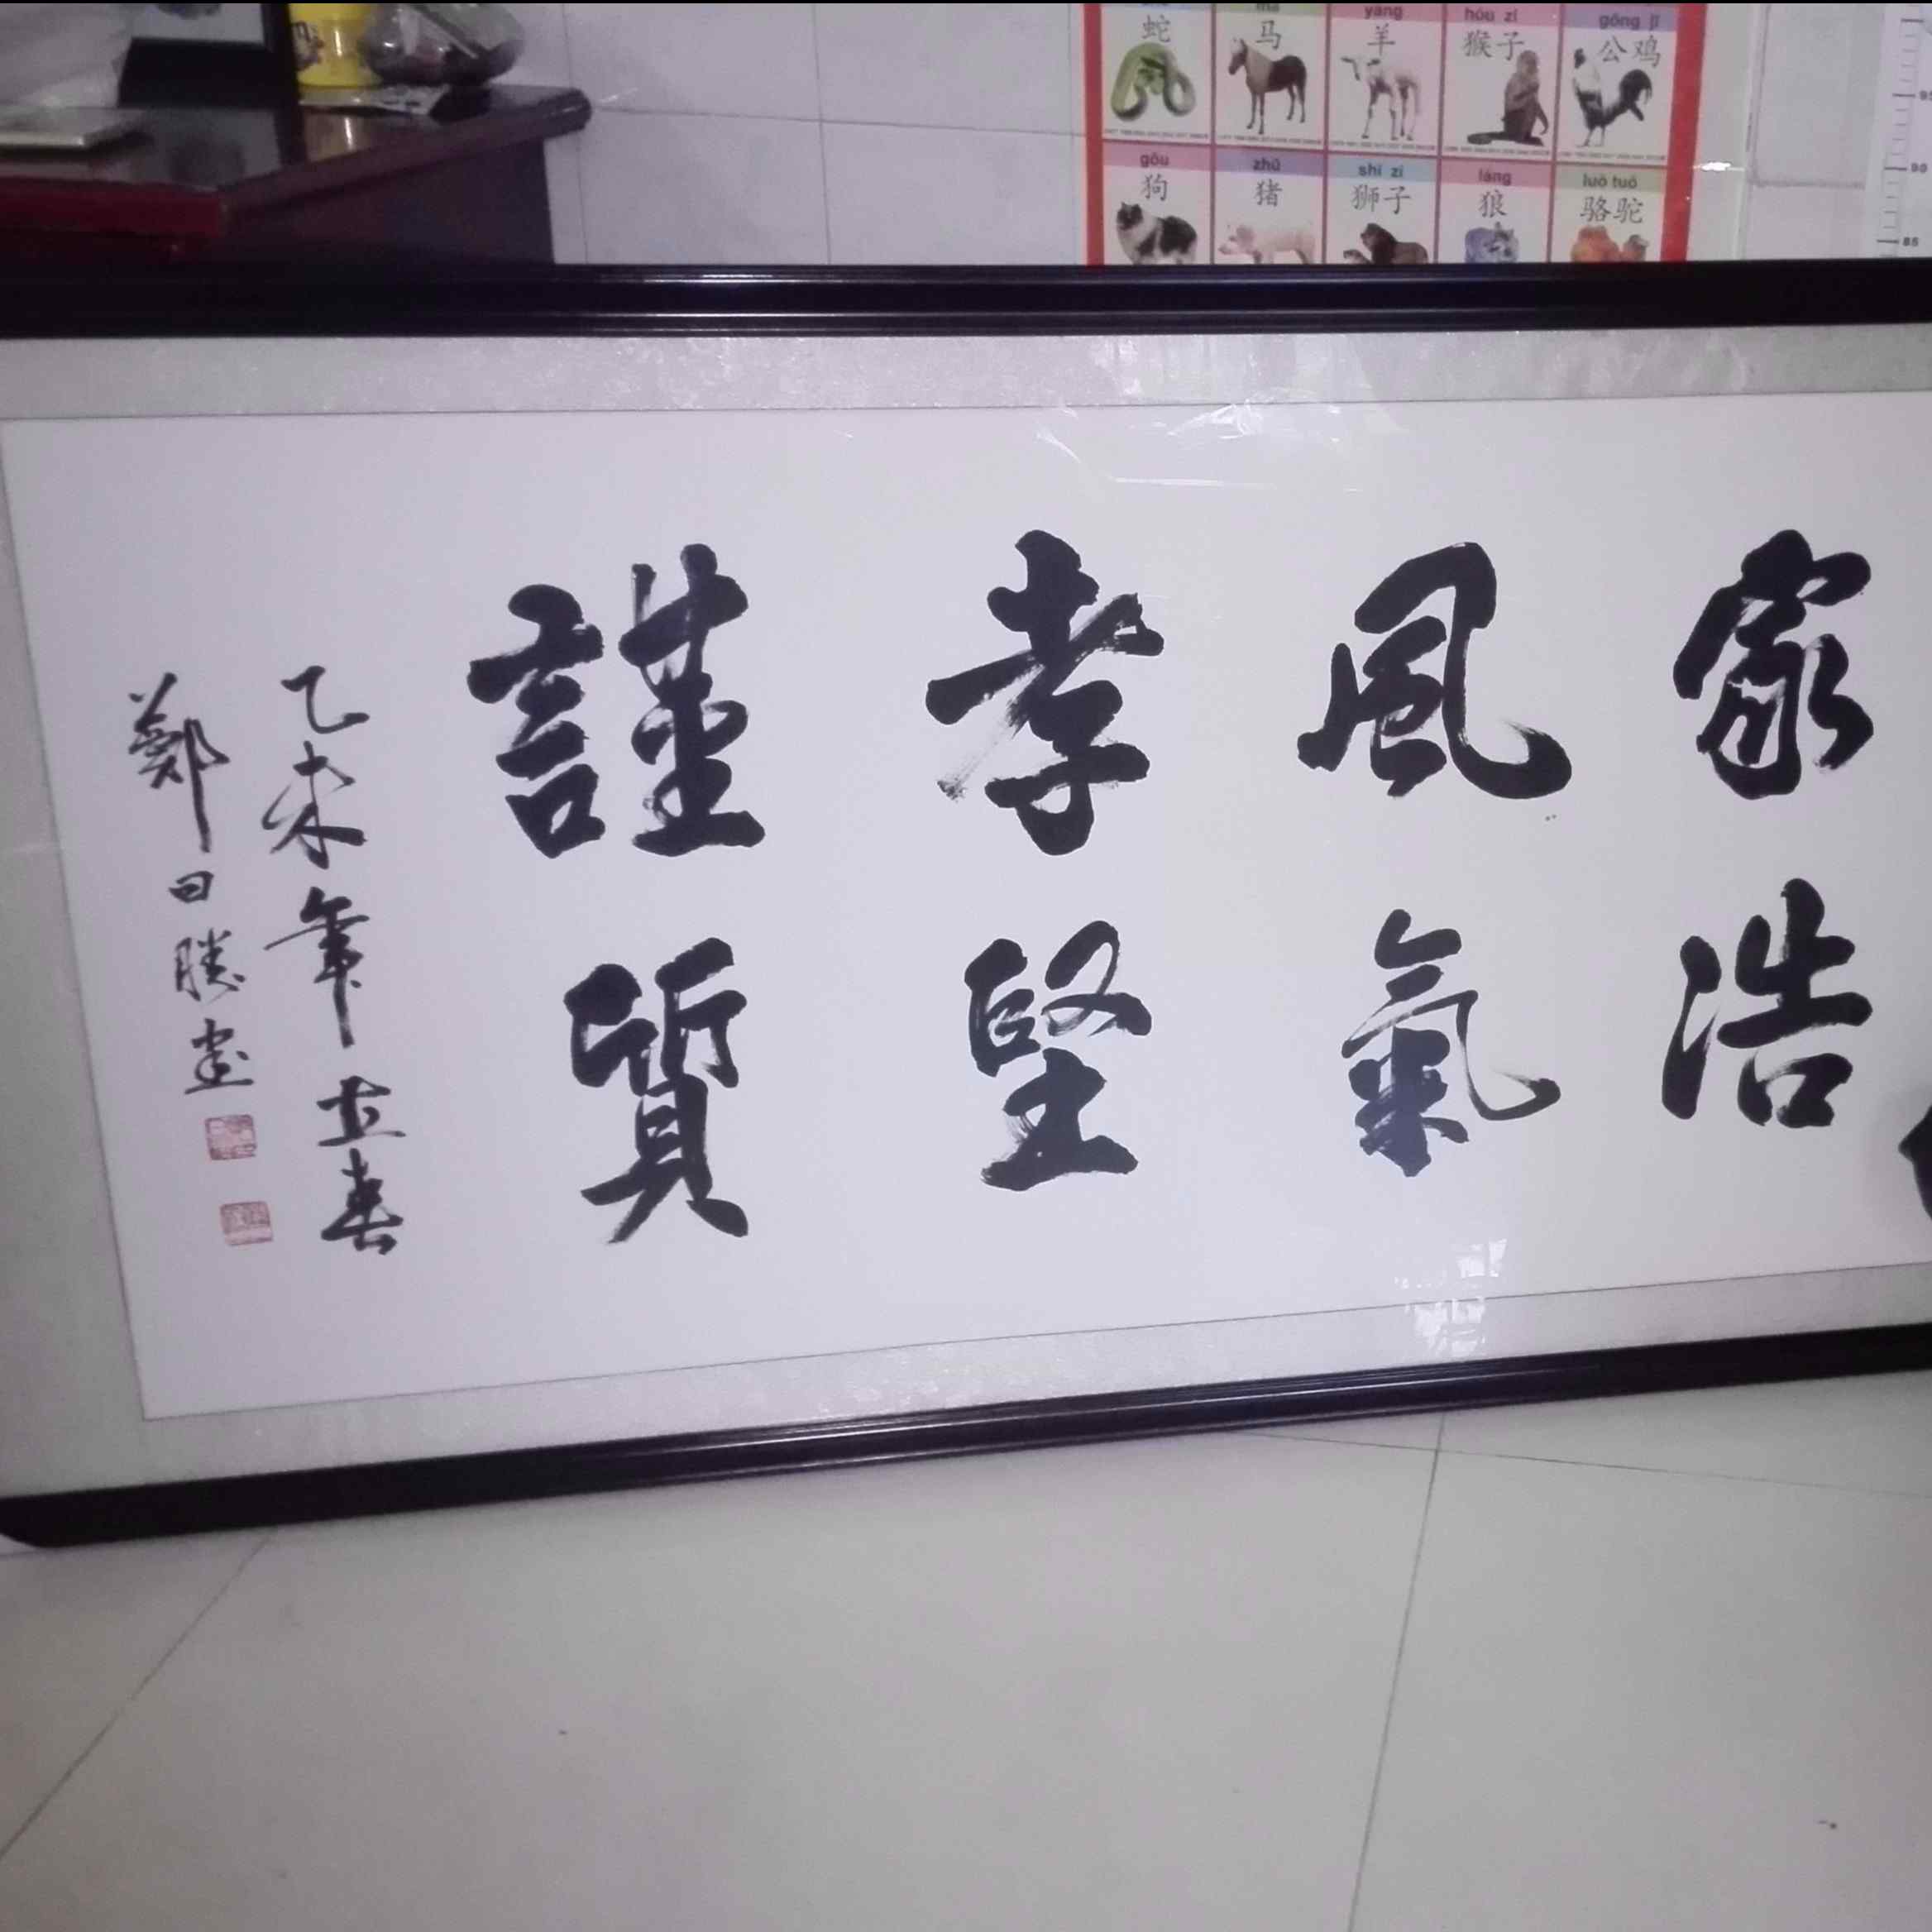 shé mǎ yáng hóu zi gōng jī
蛇 马 羊 猴子 公鸡
gǒu zhū shī zi láng luò tuó
狗 猪 狮子 狼 骆驼
95
90
85
家浩
風氣
孝堅
謹質
乙未年立春
鄭日勝書